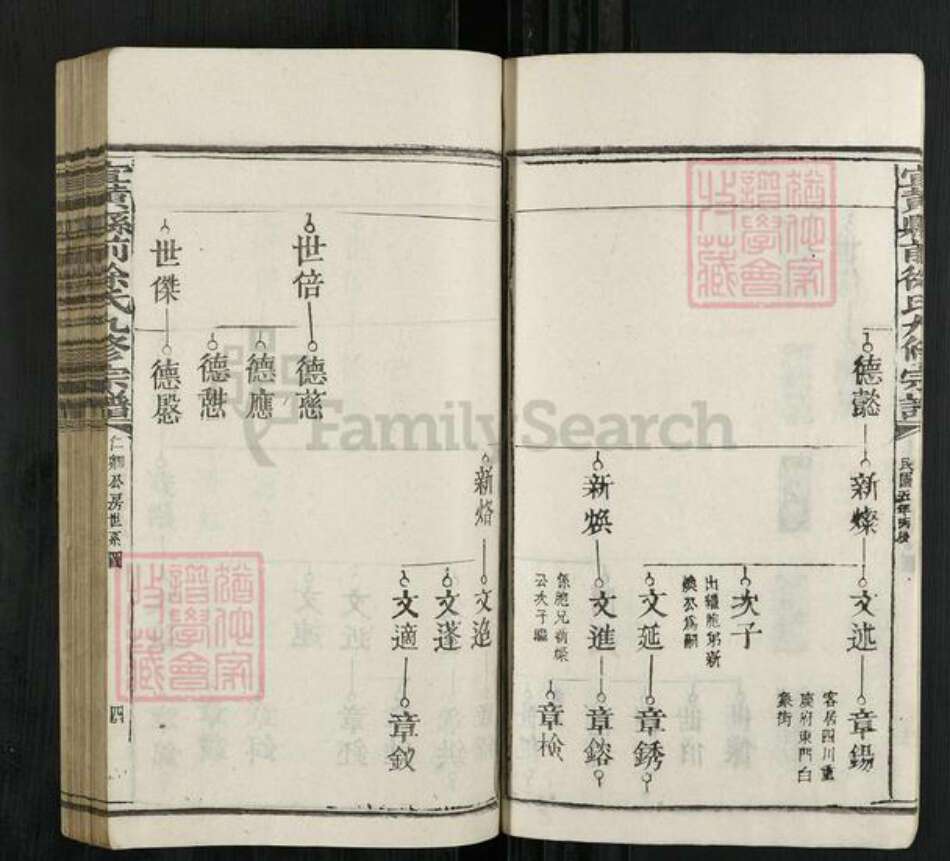 宜黃縣前徐氏九修宗譜
民國五年丙辰
德懿
新燦
文述
章錫
客居四川重
慶府東門白
象街
次子
出繼胞弟新
煥公爲嗣
文延
章銹
新煥
文進
係胞兄新燦
公次子繼
章鎔
章檢
新熔
文追
文蓬
文適
章釵
世倍
德慈
德應
德懋
世傑
德慇
宜黃縣前徐氏九修宗譜
仁卿公房世系圖
四
猶他家
譜學會
收藏
猶他家
譜學會
收藏
FamilySearch